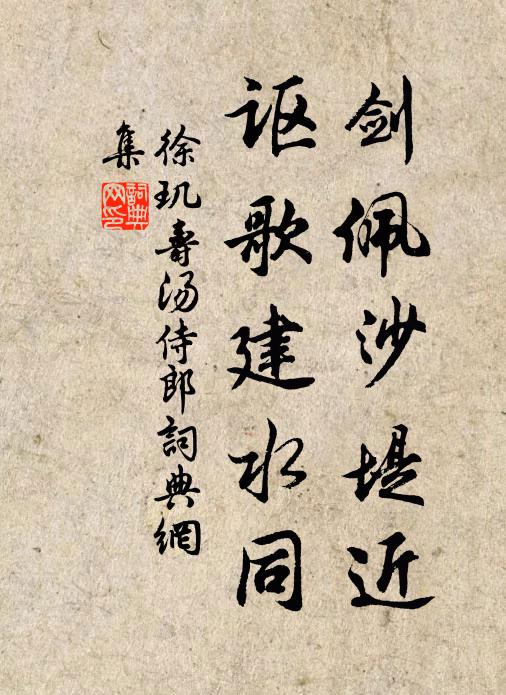 剑佩沙堤近
讴歌建水同
徐玑寿汤侍郎詞典網
集
詞典网印